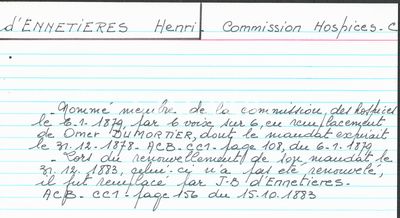 d'ENNETIERES Henri. Commission Hospices. C
- Nommé membre de la commission des hospices
le 6.1.1879, par 6 voix sur 6, en remplacement
de Omer DUMORTIER, dont le mandat expirait
le 31.12.1878 ACB. CC1. page 108, du 6.1.1879
- Lors du renouvellement de son mandat le
31.12.1883, celui-ci n'a pas été renouvelé,
il fut remplacé par J-B d'Ennetières.
ACB. CC1. page 156 du 15.10.1883